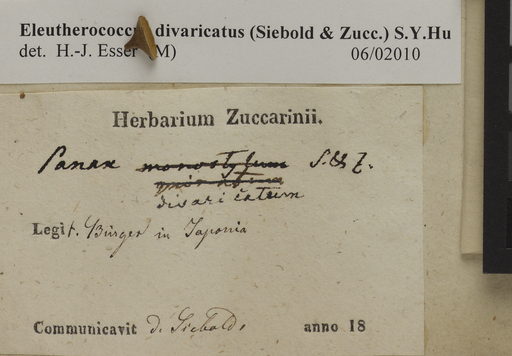 Eleutherococcus divaricatus (Siebold & Zucc.) S.Y.Hu
det. H.-J. Esser (M) 06/02010
Herbarium Zuccarinii.
Panax monostylum S. & Z.
divaricatum
Legit. Bürger in Japonia
Communicavit d. Siebold. anno 18